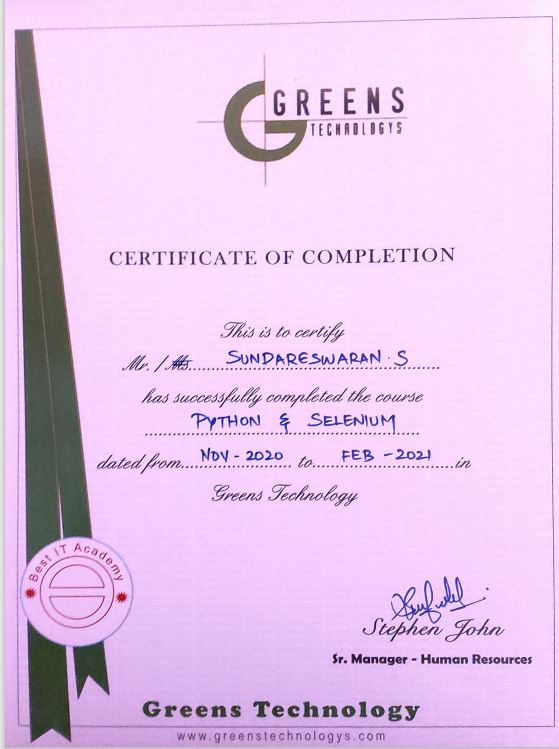 GREENS
TECHNOLOGYS
CERTIFICATE OF COMPLETION
This is to certify
Mr. / Ms. SUNDARESWARAN. S
has successfully completed the course
PYTHON & SELENIUM
dated from NOV - 2020 to FEB - 2021 in
Greens Technology
Best IT Academy
Stephen John
Sr. Manager - Human Resources
Greens Technology
www.greenstechnologys.com